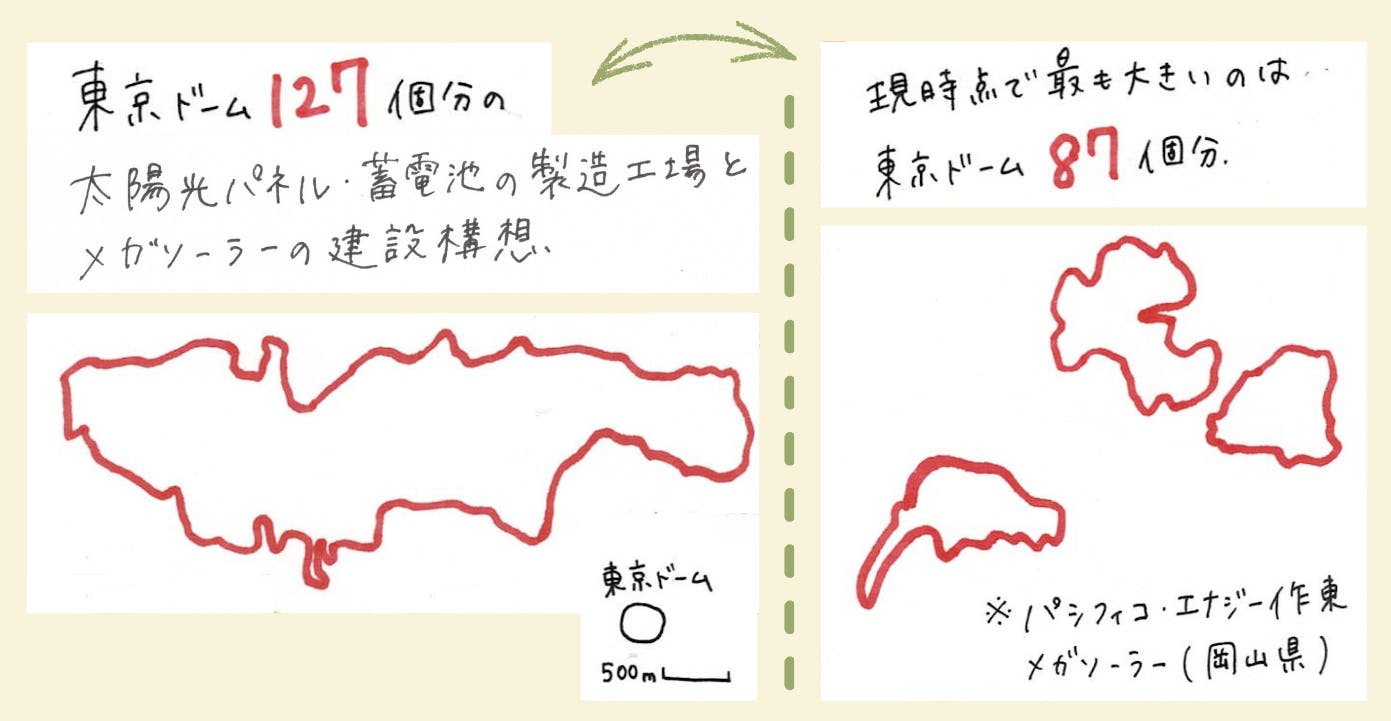 東京ドーム127個分の
太陽光パネル・蓄電池の製造工場と
メガソーラーの建設構想.
東京ドーム
500m
現時点で最も大きいのは
東京ドーム87個分.
※パシフィコ・エナジー作東
メガソーラー(岡山県)